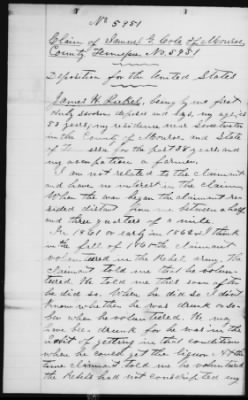 No 5951
Claim of James G. Cole of Monroe
County Tennessee No. 5951
Deposition for the United States
James H. being by me first
duly sworn deposes and says, my age is
53 years, my residence near Sweetwater
in the County of Monroe and State
of for the past 38 years, and
my occupation a farmer.
I am not related to the claimant
and have no interest in the claim.
When the war began the claimant re-
sided distant from me between a half
and three quarters of a mile.
In 1861 or early in 1862 I think
in the fall of 1861 the claimant
volunteered in the Rebel army. The
claimant told me that he volun-
teered. He told me this soon after
he did so. When he did so I dont
know whether he was drunk or so-
ber when he volunteered. He may
have been drunk for he was in the
habit of getting in that condition
when he could get the liquor. At the
time claimant told me he volunteered
the Rebels had not conscripted any